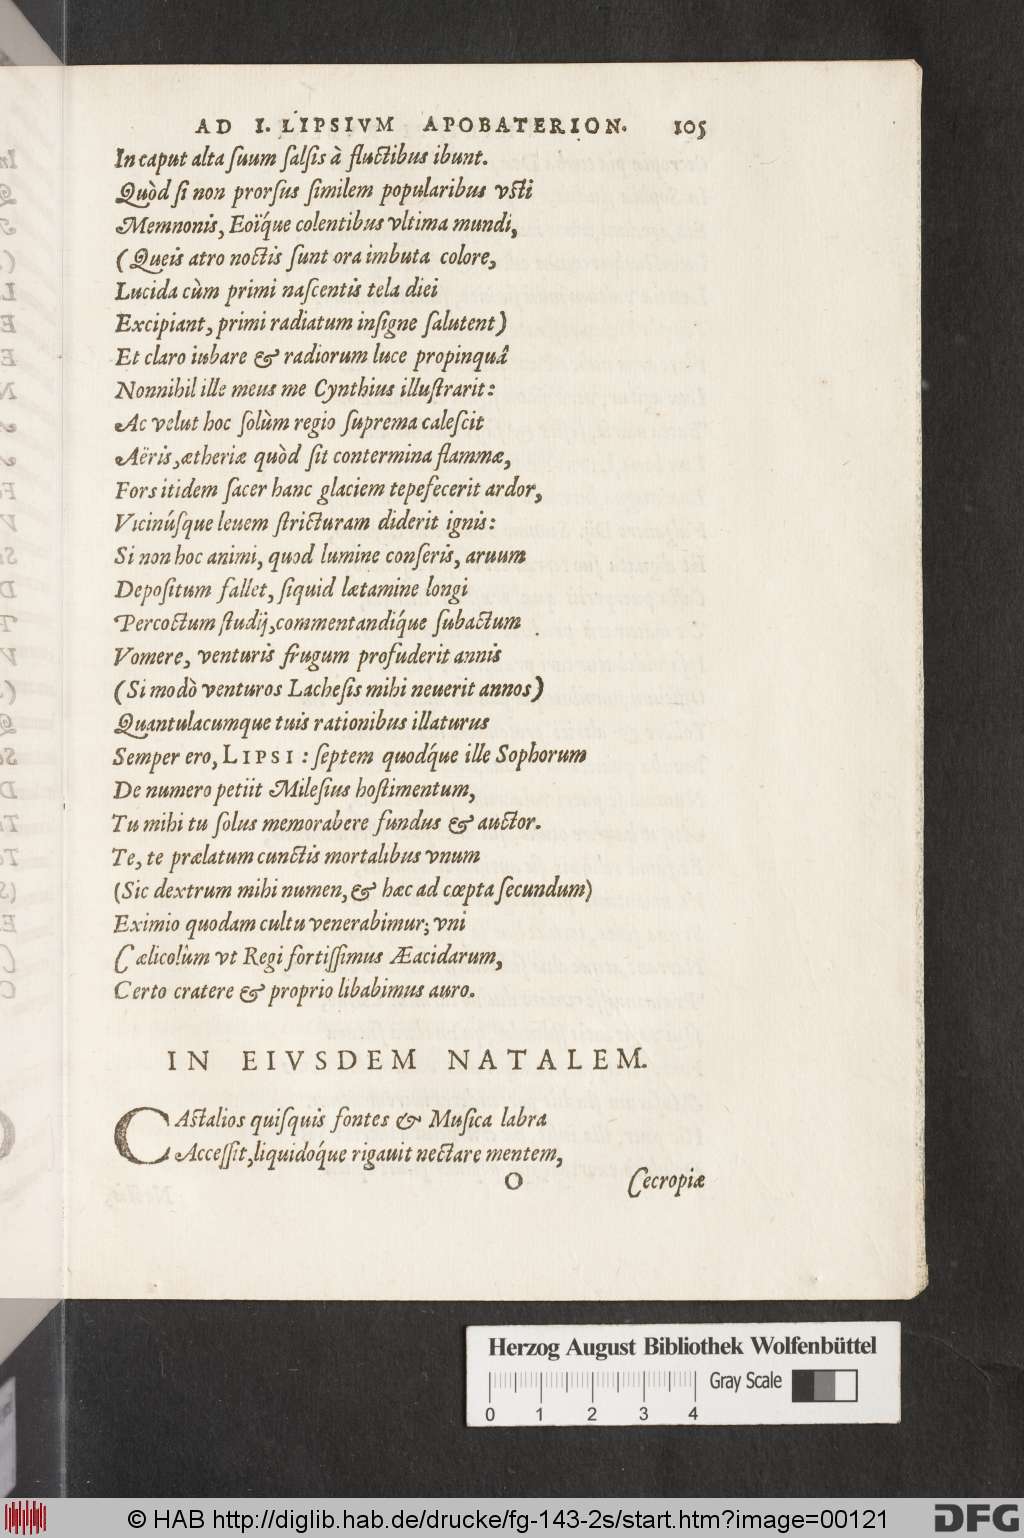 AD I. LIPSIVM APOBATERION. 105
In caput alta ſuum ſalſis à fluctibus ibunt.
Quòd ſi non prorſus ſimilem popularibus vſti
Memnonis, Eoïq́ue colentibus vltima mundi,
(Queis atro noctis ſunt ora imbuta colore,
Lucida cùm primi naſcentis tela diei
Excipiant, primi radiatum inſigne ſalutent)
Et claro iubare & radiorum luce propinquâ
Nonnihil ille meus me Cynthius illuſtrarit:
Ac velut hoc ſolùm regio ſuprema caleſcit
Aëris, ætheriæ quòd ſit contermina flammæ,
Fors itidem ſacer hanc glaciem tepefecerit ardor,
Vicinúſque leuem ſtricturam diderit ignis:
Si non hoc animi, quod lumine conſeris, aruum
Depoſitum fallet, ſiquid lætamine longi
Percoctum ſtudij, commentandiq́ue ſubactum
Vomere, venturis frugum profuderit annis
(Si modò venturos Lacheſis mihi neuerit annos)
Quantulacumque tuis rationibus illaturus
Semper ero, LIPSI: ſeptem quodq́ue ille Sophorum
De numero petiit Mileſius hoſtimentum,
Tu mihi tu ſolus memorabere fundus & auctor.
Te, te prælatum cunctis mortalibus vnum
(Sic dextrum mihi numen, & hæc ad cœpta ſecundum)
Eximio quodam cultu venerabimur; vni
Cælicolûm vt Regi fortiſſimus Æacidarum,
Certo cratere & proprio libabimus auro.
IN EIVSDEM NATALEM.
CAſtalios quiſquis fontes & Muſica labra
Acceſſit, liquidoq́ue rigauit nectare mentem,
O Cecropiæ
Herzog August Bibliothek Wolfenbüttel
Gray Scale
0 1 2 3 4
© HAB http://diglib.hab.de/drucke/fg-143-2s/start.htm?image=00121 DFG